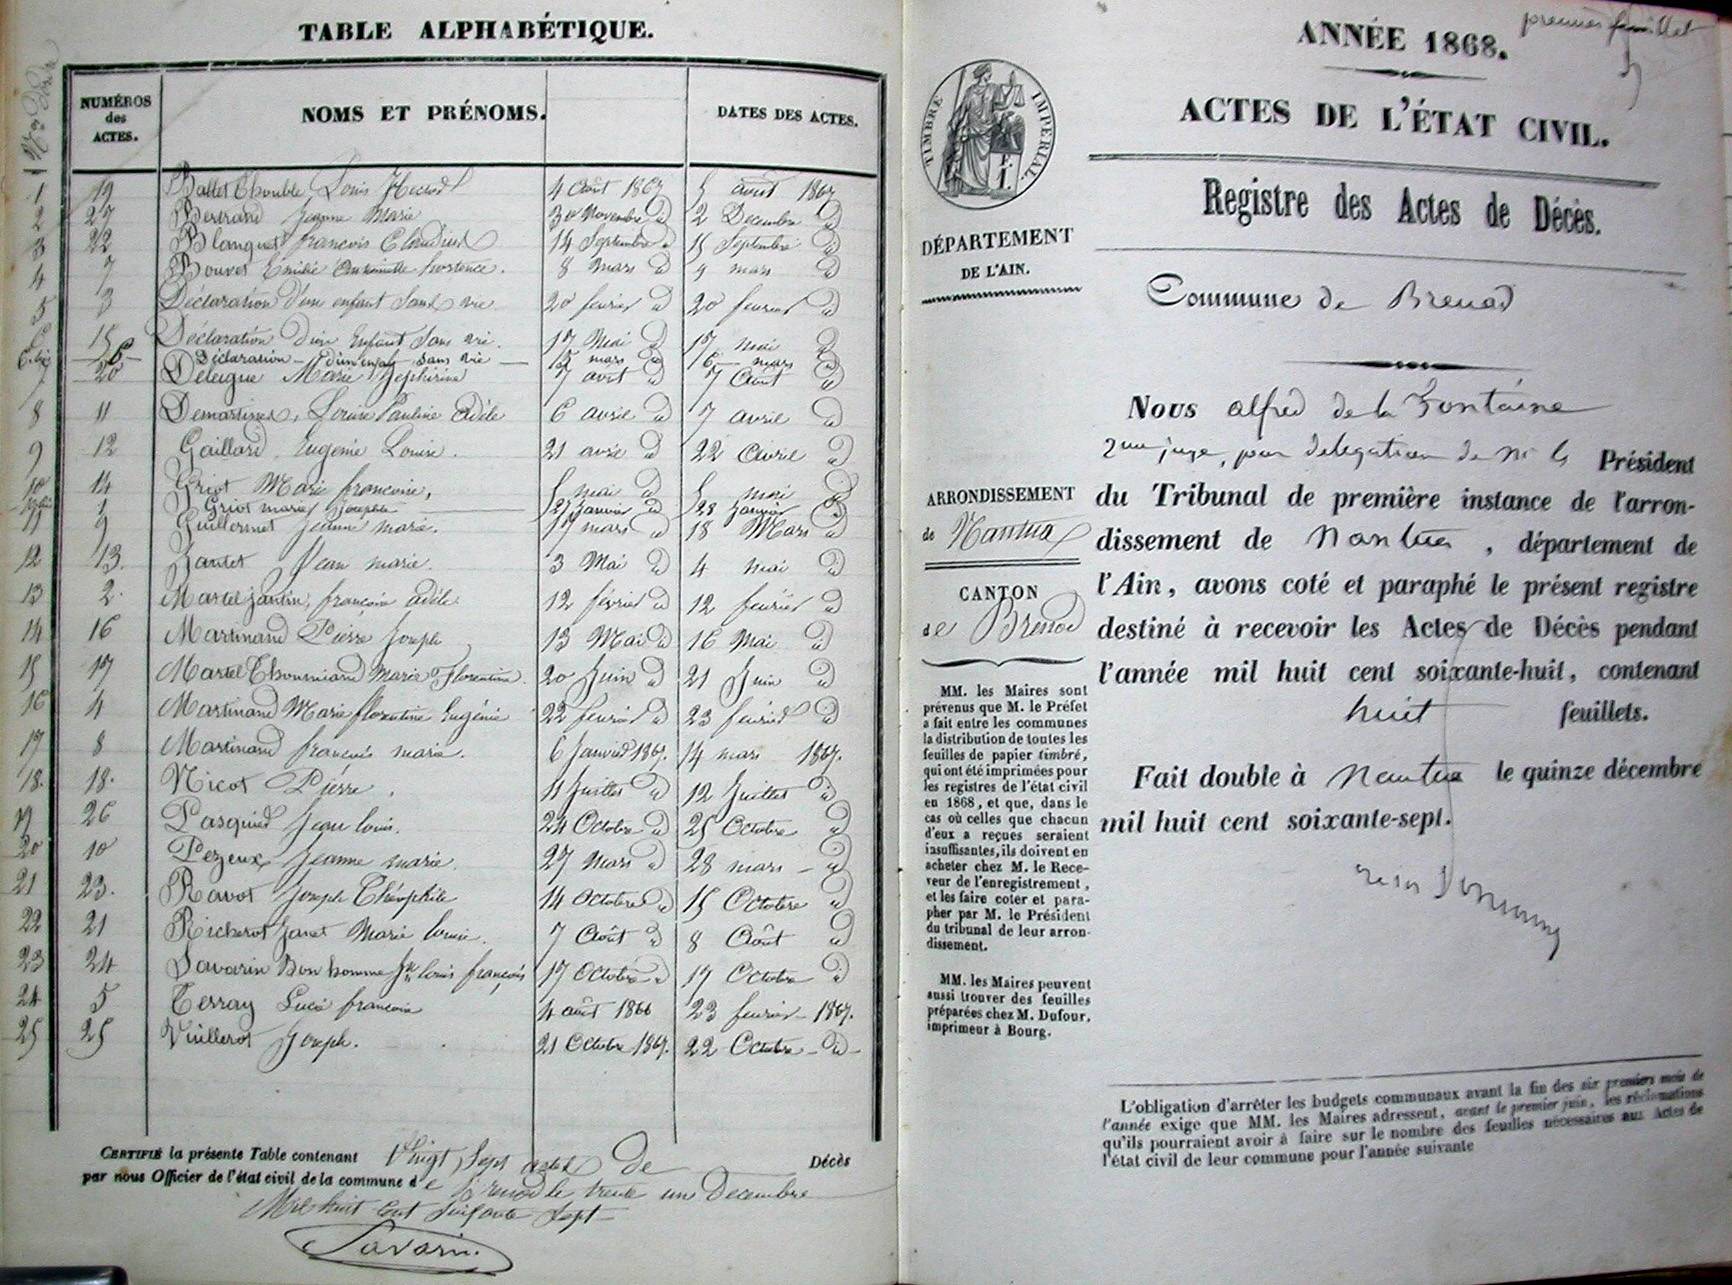 TABLE ALPHABÉTIQUE.
NUMÉROS des ACTES.
NOMS ET PRÉNOMS.
DATES DES ACTES.
1 19 Ballet Thouble Louis 4 août 1867 5 août 1867
2 27 Bertrand Jeanne Marie 30 Novembre d 2 Décembre d
3 22 Blanquet françois Claudius 14 Septembre d 15 Septembre d
4 7 Bouvet Emilie Antoinette hortence. 8 mars d 9 mars d
5 3 Déclaration d'un enfant sans vie 20 fevrier d 20 fevrier d
15 Déclaration d'un Enfant sans vie. 17 Mai d 17 mai d
6 Déclaration d'un enfant sans vie 15 mars d 16 mars d
7 20 Deleigue Marie Zéphirine 7 avut d 7 Août d
8 11 Demartines, Louise Pauline adèle 6 avril d 7 avril d
9 12 Gaillard Eugénie Louise. 21 avril d 22 avril d
10 14 Griot Marie francoise, 5 mai d 5 mai d
1 Griot marie Josephte 27 Janvier d 28 Janvier d
11 9 Guillermet Jeanne marie. 17 mars d 18 Mars d
12 13. Jantet Jean marie. 3 Mai d 4 mai d
13 2. Martel jantin, francoise adèle. 12 février d 12 fevrier d
14 16 Martinand Pierre Joseph 13 Mai d 16 Mai d
15 17 Martel Thoumiand Marie Florentine. 20 Juin d 21 Juin d
16 4 Martinand Marie florentine Eugénie 22 fevrier d 23 fevrier d
17 8 Martinand françois marie. 6 Janvier 1867. 14 mars 1867.
18. 18. Nicot Pierre, 11 Juillet d 12 Juillet d
19 26 Pasquier Jean louis. 24 Octobre d 25 Octobre d
20 10 Pezeux Jeanne marie. 27 Mars d 28 mars - d
21 23. Ravot Joseph Théophile 14 Octobre d 15 Octobre d
22 21 Richerot Janet Marie louise. 7 Août d 8 Août d
23 24 Savarin Bonhomme Jn louis françois 17 Octobre d 17 Octobre d
24 5 Terray Lucie francoise 4 août 1866 23 fevrier 1867.
25 25 Vuillerot Joseph. 21 Octobre 1867. 22 Octobre - d -
CERTIFIÉ la présente Table contenant Vingt Sept actes de Décès
par nous Officier de l'état civil de la commune de Brenod le trente un Decembre
Mil huit Cent Soixante Sept
Savarin.
premier feuillet
ANNÉE 1868.
ACTES DE L'ÉTAT CIVIL.
Registre des Actes de Décès.
TIMBRE IMPÉRIAL.
DÉPARTEMENT
DE L'AIN.
Commune de Brenod
Nous alfred de la Fontaine
2me juge, par delegation de Mr le Président
du Tribunal de première instance de l'arron-
dissement de Nantua, département de
l'Ain, avons coté et paraphé le présent registre
destiné à recevoir les Actes de Décès pendant
l'année mil huit cent soixante-huit, contenant
huit feuillets.
Fait double à Nantua le quinze décembre
mil huit cent soixante-sept.
ARRONDISSEMENT
de Nantua
CANTON
de Brenod
MM. les Maires sont
prévenus que M. le Préfet
a fait entre les communes
la distribution de toutes les
feuilles de papier timbré,
qui ont été imprimées pour
les registres de l'état civil
en 1868, et que, dans le
cas où celles que chacun
d'eux a reçues seraient
insuffisantes, ils doivent en
acheter chez M. le Rece-
veur de l'enregistrement,
et les faire coter et para-
pher par M. le Président
du tribunal de leur arron-
dissement.
MM. les Maires peuvent
aussi trouver des feuilles
préparées chez M. Dufour,
imprimeur à Bourg.
L'obligation d'arrêter les budgets communaux avant la fin des six premiers mois de
l'année exige que MM. les Maires adressent, avant le premier juin, les réclamations
qu'ils pourraient avoir à faire sur le nombre des feuilles nécessaires aux Actes de
l'état civil de leur commune pour l'année suivante